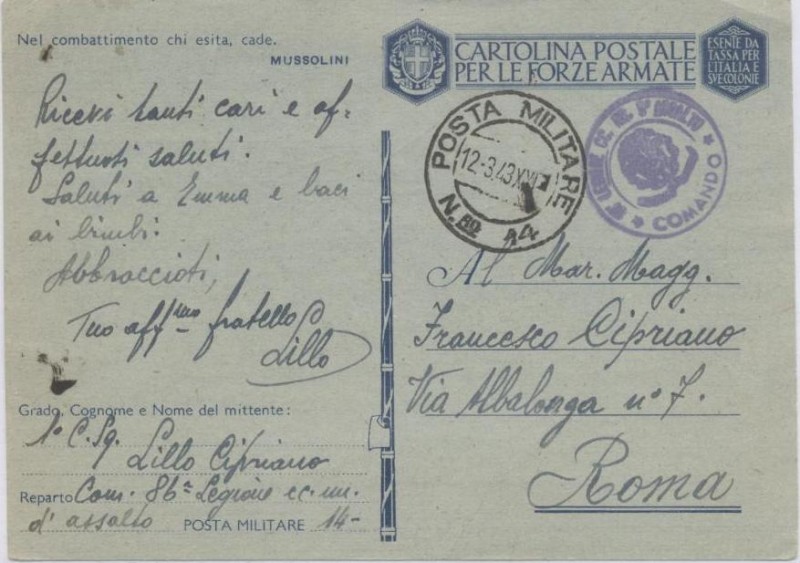 Nel combattimento chi esita, cade.
MUSSOLINI
Ricevi tanti cari e af-
fettuosi saluti.
Saluti a Emma e baci
ai bimbi.
Abbraccioti,
Tuo aff.mo fratello
Lillo
Grado, Cognome e Nome del mittente:
1° C. Sq.
Lillo Cipriano
Reparto Com. 86ª Legione cc. nn.
d'assalto POSTA MILITARE 14-
CARTOLINA POSTALE
PER LE FORZE ARMATE
ESENTE DA
TASSA PER
L'ITALIA E
SVE COLONIE
POSTA MILITARE
12-3.43 XXI
N.ro 14
LEGIONE CC. NN. D'ASSALTO
COMANDO
Al Mar. Magg.
Francesco Cipriano
Via Albalonga n° 7.
Roma